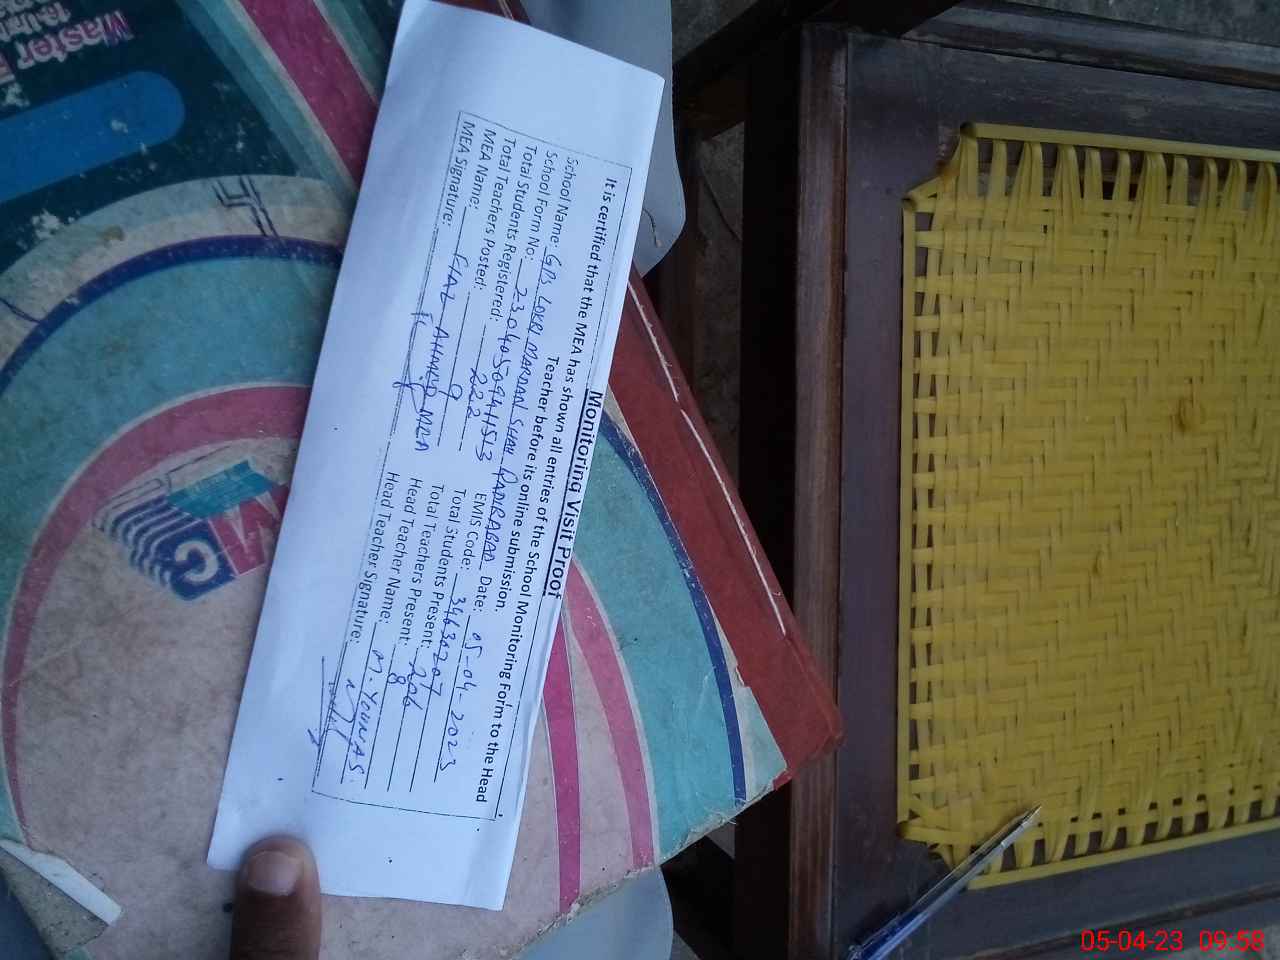 Monitoring Visit Proof
It is certified that the MEA has shown all entries of the School Monitoring Form to the Head
Teacher before its online submission.
School Name: GPS LOKRI MARDAN SHAH Date: 05-04-2023
School Form No: 2304050944513 EMIS Code: 34630207
Total Students Registered: 222 Total Students Present: 206
Total Teachers Posted: 9 Total Teachers Present: 8
MEA Name: FIAZ AHMED MEA Head Teacher Name: M. YOUNAS
MEA Signature: Head Teacher Signature:
Master
05-04-23 09:58